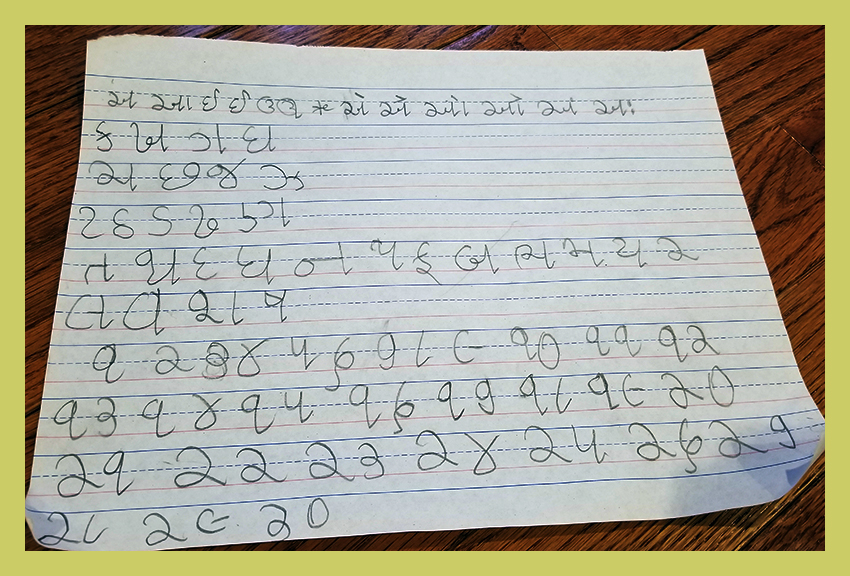 અ આ ઇ ઈ ઉ ઊ * એ ઐ ઓ ઔ અં અઃ
ક ખ ગ ઘ
ચ છ જ ઝ
ટ ઠ ડ ઢ ણ
ત થ દ ધ ન પ ફ બ ભ મ ય ર
લ વ શ ષ
૧ ૨ ૩ ૪ ૫ ૬ ૭ ૮ ૯ ૧૦ ૧૧ ૧૨
૧૩ ૧૪ ૧૫ ૧૬ ૧૭ ૧૮ ૧૯ ૨૦
૨૧ ૨૨ ૨૩ ૨૪ ૨૫ ૨૬ ૨૭
૨૮ ૨૯ ૩૦